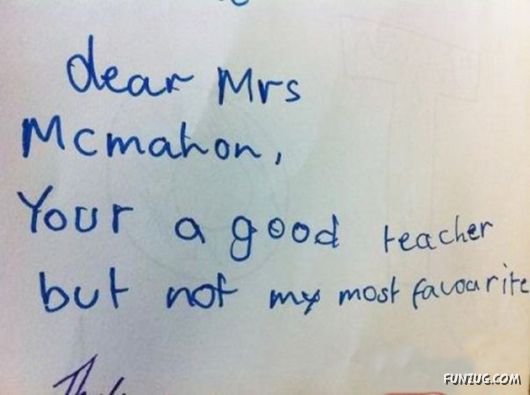 dear Mrs
Mcmahon,
Your a good teacher
but not my most favourite
FUNZUG.COM